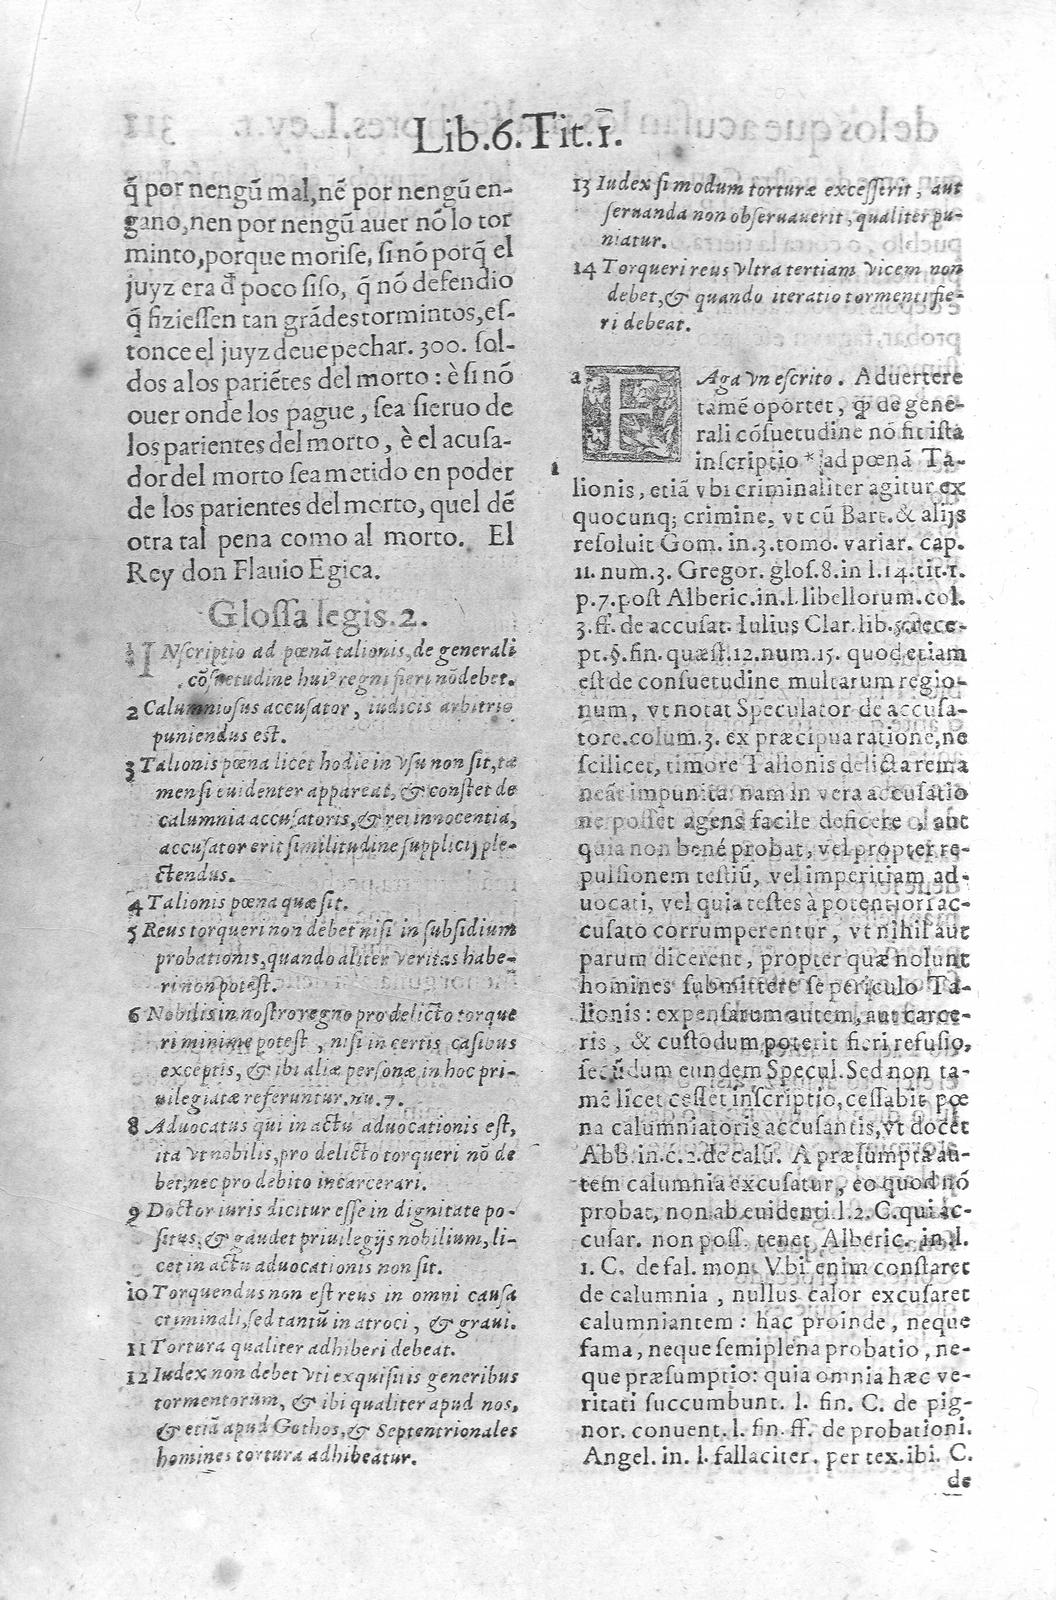 Lib.6.Tit.1.
q̃ por nengũ mal, nẽ por nengũ en-
gano, nen por nengũ auer nõ lo tor
minto, porque morise, si nõ porq̃ el
juyz era d̃ poco siso, q̃ nõ defendio
q̃ fiziessen tan grãdes tormintos, es-
tonce el juyz deue pechar. 300. sol-
dos a los pariẽtes del morto : è si nõ
ouer onde los pague, sea sieruo de
los parientes del morto, è el acusa-
dor del morto sea metido en poder
de los parientes del morto, quel dẽ
otra tal pena como al morto. El
Rey don Flauio Egica.
Glossa legis.2.
1 INscriptio ad pœnã talionis, de generali
cõsuetudine huiꝰ regni fieri nõ debet.
2 Calumniosus accusator, iudicis arbitrio
puniendus est.
3 Talionis pœna licet hodie in vsu non sit, ta
men si euidenter appareat, & constet de
calumnia accusatoris, & rei innocentia,
accusator erit similitudine supplicij ple-
ctendus.
4 Talionis pœna quæ sit.
5 Reus torqueri non debet nisi in subsidium
probationis, quando aliter veritas habe-
ri non potest.
6 Nobilis in nostro regno pro delicto torque
ri minime potest, nisi in certis casibus
exceptis, & ibi aliæ personæ in hoc pri-
uilegiatæ referuntur. nu. 7.
8 Aduocatus qui in actu aduocationis est,
ita vt nobilis, pro delicto torqueri nõ de
bet, nec pro debito incarcerari.
9 Doctor iuris dicitur esse in dignitate po-
situs, & gaudet priuilegijs nobilium, li-
cet in actu aduocationis non sit.
10 Torquendus non est reus in omni causa
criminali, sed tantũ in atroci, & graui.
11 Tortura qualiter adhiberi debeat.
12 Iudex non debet vti exquisitis generibus
tormentorum, & ibi qualiter apud nos,
& etiã apud Gothos, & Septentrionales
homines tortura adhibeatur.
13 Iudex si modum torturæ excesserit, aut
seruanda non obseruauerit, qualiter pu-
niatur.
14 Torqueri reus vltra tertiam vicem non
debet, & quando iteratio tormenti fie-
ri debeat.
a FAga vn escrito. Aduertere
tamẽ oportet, ꝙ de gene-
rali cõsuetudine nõ fit ista
1 inscriptio * ad pœnã Ta-
lionis, etiã vbi criminaliter agitur ex
quocunq; crimine, vt cũ Bart. & alijs
resoluit Gom. in. 3. tomo. variar. cap.
11. num. 3. Gregor. glos. 8. in l. 14. tit. 1.
p. 7. post Alberic. in. l. libellorum. col.
3. ff. de accusat. Iulius Clar. lib. 5. rece-
pt. §. fin. quæst. 12. num. 15. quod etiam
est de consuetudine multarum regio-
num, vt notat Speculator de accusa-
tore. colum. 3. ex præcipua ratione, ne
scilicet, timore Talionis delicta rema
neãt impunita. nam in vera accusatio
ne posset agens facile deficere, aut
quia non bené probat, vel propter re-
pulsionem testiũ, vel imperitiam ad-
uocati, vel quia testes à potentiori ac-
cusato corrumperentur, vt nihil aut
parum dicerent, propter quæ nolunt
homines submittere se periculo Ta-
lionis : expensarum autem, aut carce-
ris, & custodum poterit fieri refusio,
secũdum eundem Specul. Sed non ta-
mẽ licet cesset inscriptio, cessabit pœ
na calumniatoris accusantis, vt docet
Abb. in. c. 2. de calũ. A præsumpta au-
tem calumnia excusatur, eo quod nõ
probat, non ab euidenti. l. 2. C. qui ac-
cusar. non poss. tenet Alberic. in. l.
1. C. de fal. mon. Vbi enim constaret
de calumnia, nullus calor excusaret
calumniantem : hac proinde, neque
fama, neque semiplena probatio, ne-
que præsumptio: quia omnia hæc ve-
ritati succumbunt. l. fin. C. de pig-
nor. conuent. l. fin. ff. de probationi.
Angel. in. l. fallaciter. per tex. ibi. C.
de